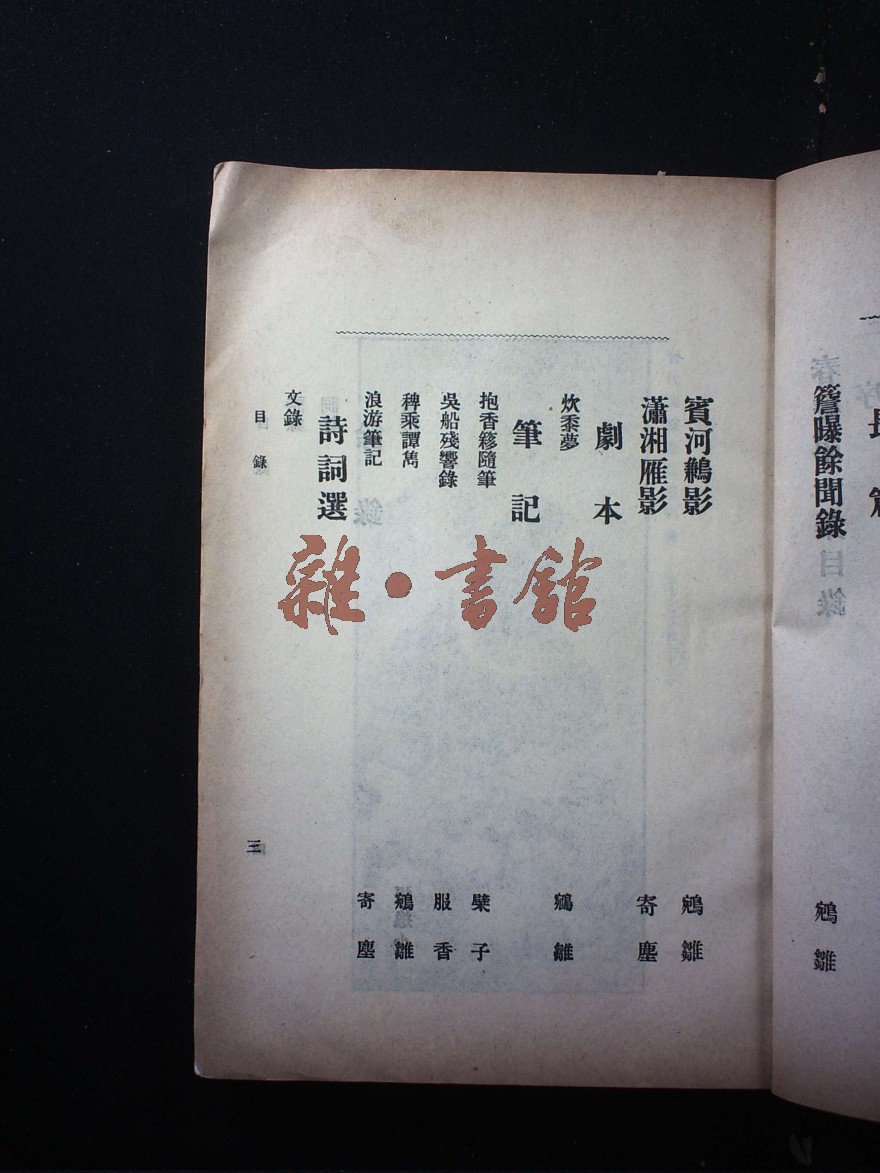 簷曝餘聞錄 鵷雛
賓河鶼影 鵷雛
瀟湘雁影 寄塵
劇本
炊黍夢 鵷雛
筆記
抱香簃隨筆 檗子
吳船殘響錄 服香
稗乘譚雋 鵷雛
浪游筆記 寄塵
詩詞選
文錄
目錄 三
雜·書館